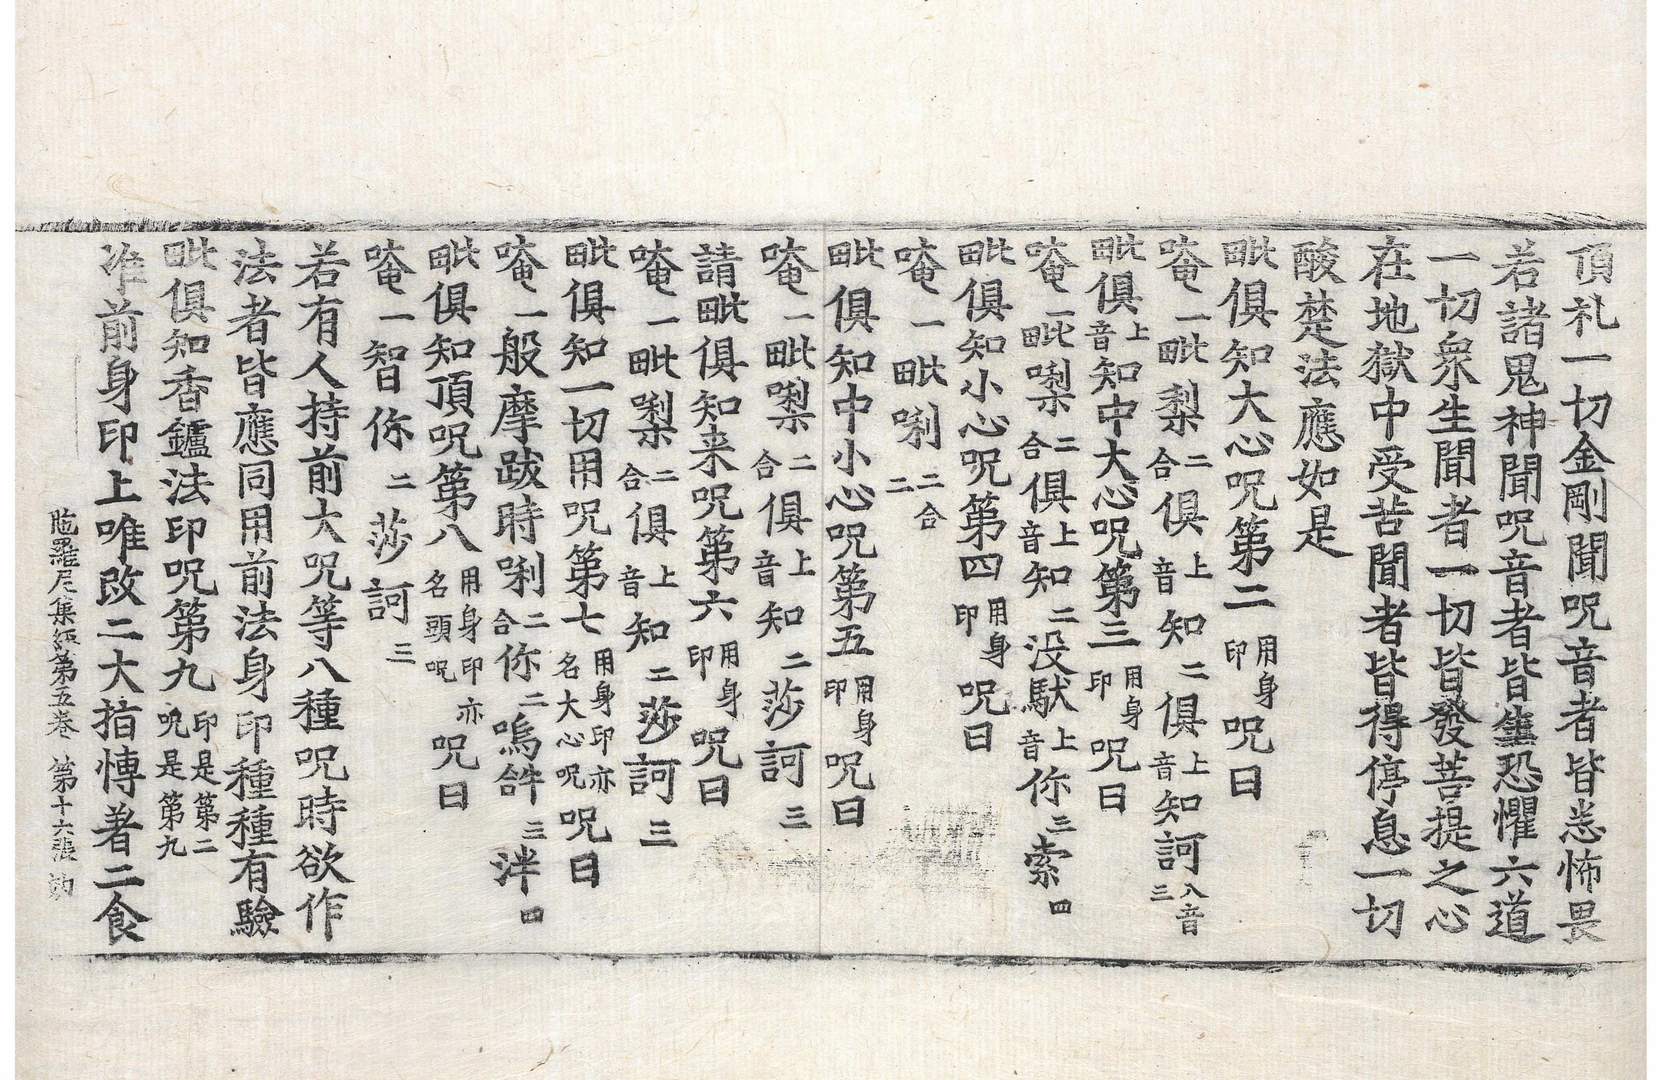 頂礼一切金剛聞呪音者皆悉怖畏
若諸鬼神聞呪音者皆生恐懼六道
一切衆生聞者一切皆發菩提之心
在地獄中受苦聞者皆得停息一切
酸楚法應如是
毗俱知大心呪第二用身印呪曰
唵一毗梨二合俱上音知二俱上音知訶入音三
毗俱上音知中大心呪第三用身印呪曰
唵一毗㗚二合俱上音知二没馱上音你三索四
毗俱知小心呪第四用身印呪曰
唵一毗唎二合二
毗俱知中小心呪第五用身印呪曰
唵一毗㗚二合俱上音知二莎訶三
請毗俱知来呪第六用身印呪曰
唵一毗㗚二合俱上音知二莎訶三
毗俱知一切用呪第七用身印亦名大心呪呪曰
唵一般摩跋時唎二合你二嗚𤙖三泮四
毗俱知頂呪第八用身印亦名頭呪呪曰
唵一智你二莎訶三
若有人持前大呪等八種呪時欲作
法者皆應同用前法身印種種有驗
毗俱知香鑪法印呪第九印是第二呪是第九
准前身印上唯改二大指博著二食
陁羅尼集經第五卷 第十六張